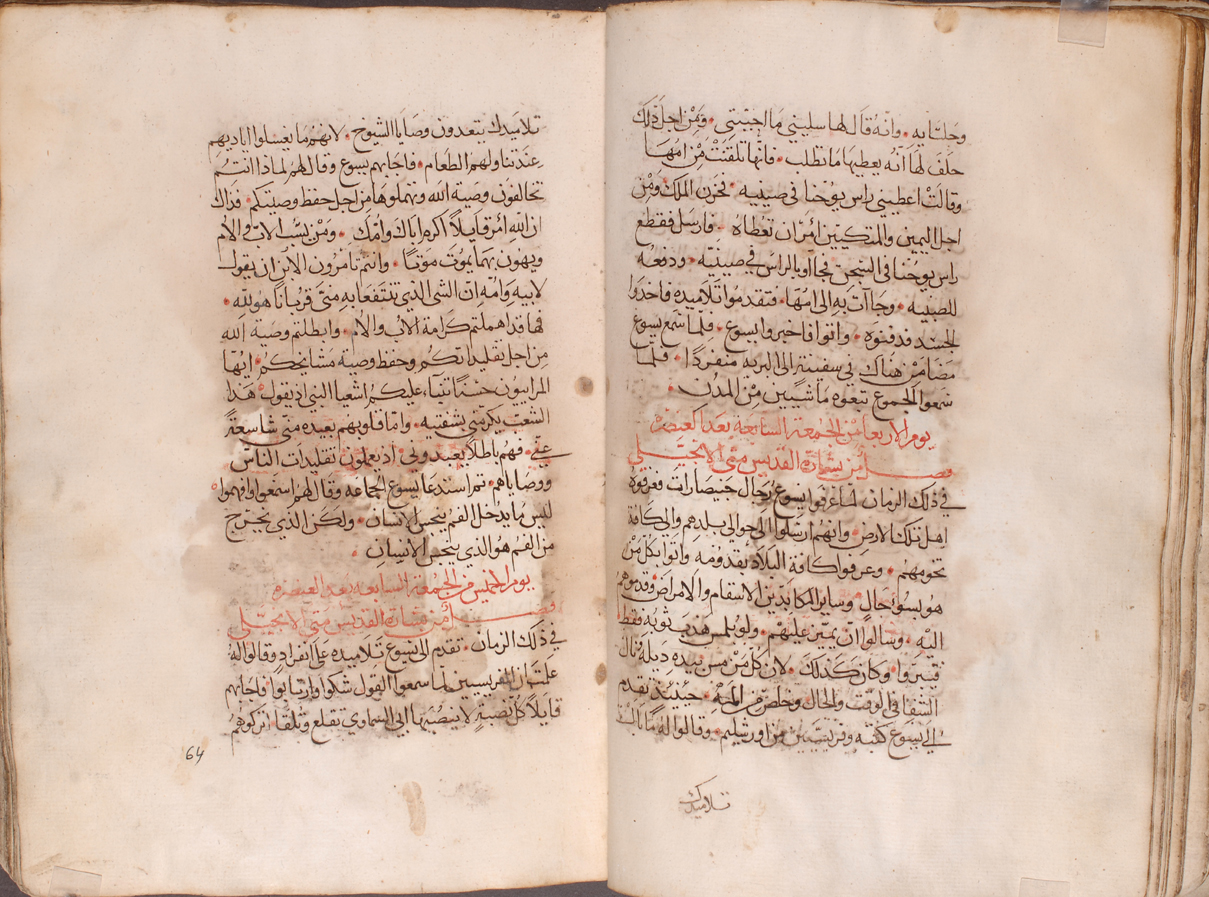 وجلسايه • وانه قال لها سليني ما احببتي • ومن اجل ذلك
حلف لها انه يعطيها ما تطلب • فانها تلقنت من امها
وقالت اعطيني راس يوحنا في صينيه • فحزن الملك ومن
اجل اليمين والمتكيين امر ان تعطاه • فارسل فقطع
راس يوحنا في السجن فجاآوا بالراس في صينية • ودفعه
للصبيه • وجاآت به الى امها • فتقدموا تلاميده فاخدوا
الجسد فدفنوه • واتوا فاخبروا يسوع • فلما سمع يسوع
مضا من هناك في سفينة الى البريه منفردا • فلما
سمعوا الجموع تبعوه ماشيين من المدن •
يوم الاربعا من الجمعة السابعه بعد العنصره
فصل من بشارة القديس متى الانجيلي
في ذلك الزمان لما عرفوا يسوع رجال جنيصارات فعرفوه
اهل تلك الارض • وانهم ارسلوا الى حوالي بلدهم والى كافة
تخومهم • وعرفوا كافة البلاد بقدومه واتوا بكل من
هو بسو حال وساير المكابدين الاسقام والامراض وقدموهم
اليه • وسالوا ان يميز عليهم • ولو يلمس هدب ثوبه فقط
فيبروا • وكان كذلك • لان كل من مس بيده ذيله نال
الشفا في الوقت والحال وخلص من المحنه • حينيذ تقدم
الى يسوع كتبه وفريسيين من اورشليم • وقالوا له ما بال
تلاميدك
تلاميدك يتعدون وصايا الشيوخ • لانهم ما يغسلوا اياديهم
عند تناولهم الطعام • فاجابهم يسوع وقال لهم لماذا انتم
تخالفون وصية الله وتهملوها من اجل حفظ وصيتكم • فداك
ان الله امر قايلا اكرم اباك وامك • ومن سب الاب والام
ويهون بهما يموت موتا • وانتم تامرون الابن ان يقول
لابيه وامه ان الشى الذي تنتفعا به منى قربانا هو لله •
فها قد اهملتم كرامة الاب والام • وابطلتم وصية الله
من اجل تقليداتكم وحفظ وصية مشايخكم • ايها
المراييون حسنا تنبآء عليكم اشعيا النبي اذ يقول هذا
الشعب يكرمني بشفتيه • واما قلوبهم بعيده منى شاسعة
عني • فهم باطلا يعبدوني • اذ يعملون تقليدات الناس
ووصاياهم • ثم استدعا يسوع الجماعه وقال لهم اسمعوا وافهموا
ليس ما يدخل الفم ينجس الانسان • ولكن الذي يخرج
من الفم هو الذي ينجس الانسان •
يوم الخميس من الجمعة السابعه بعد العنصره
فصل من بشارة القديس متى الانجيلي
في ذلك الزمان • تقدم الى يسوع تلاميده على انفراد وقالوا له
علمت ان الفريسيين لما سمعوا القول شكوا وارتابوا فاجابهم
قايلا كل نصبة لا ينصبها ابي السماوي تقلع وتلقا اتركوهم
64